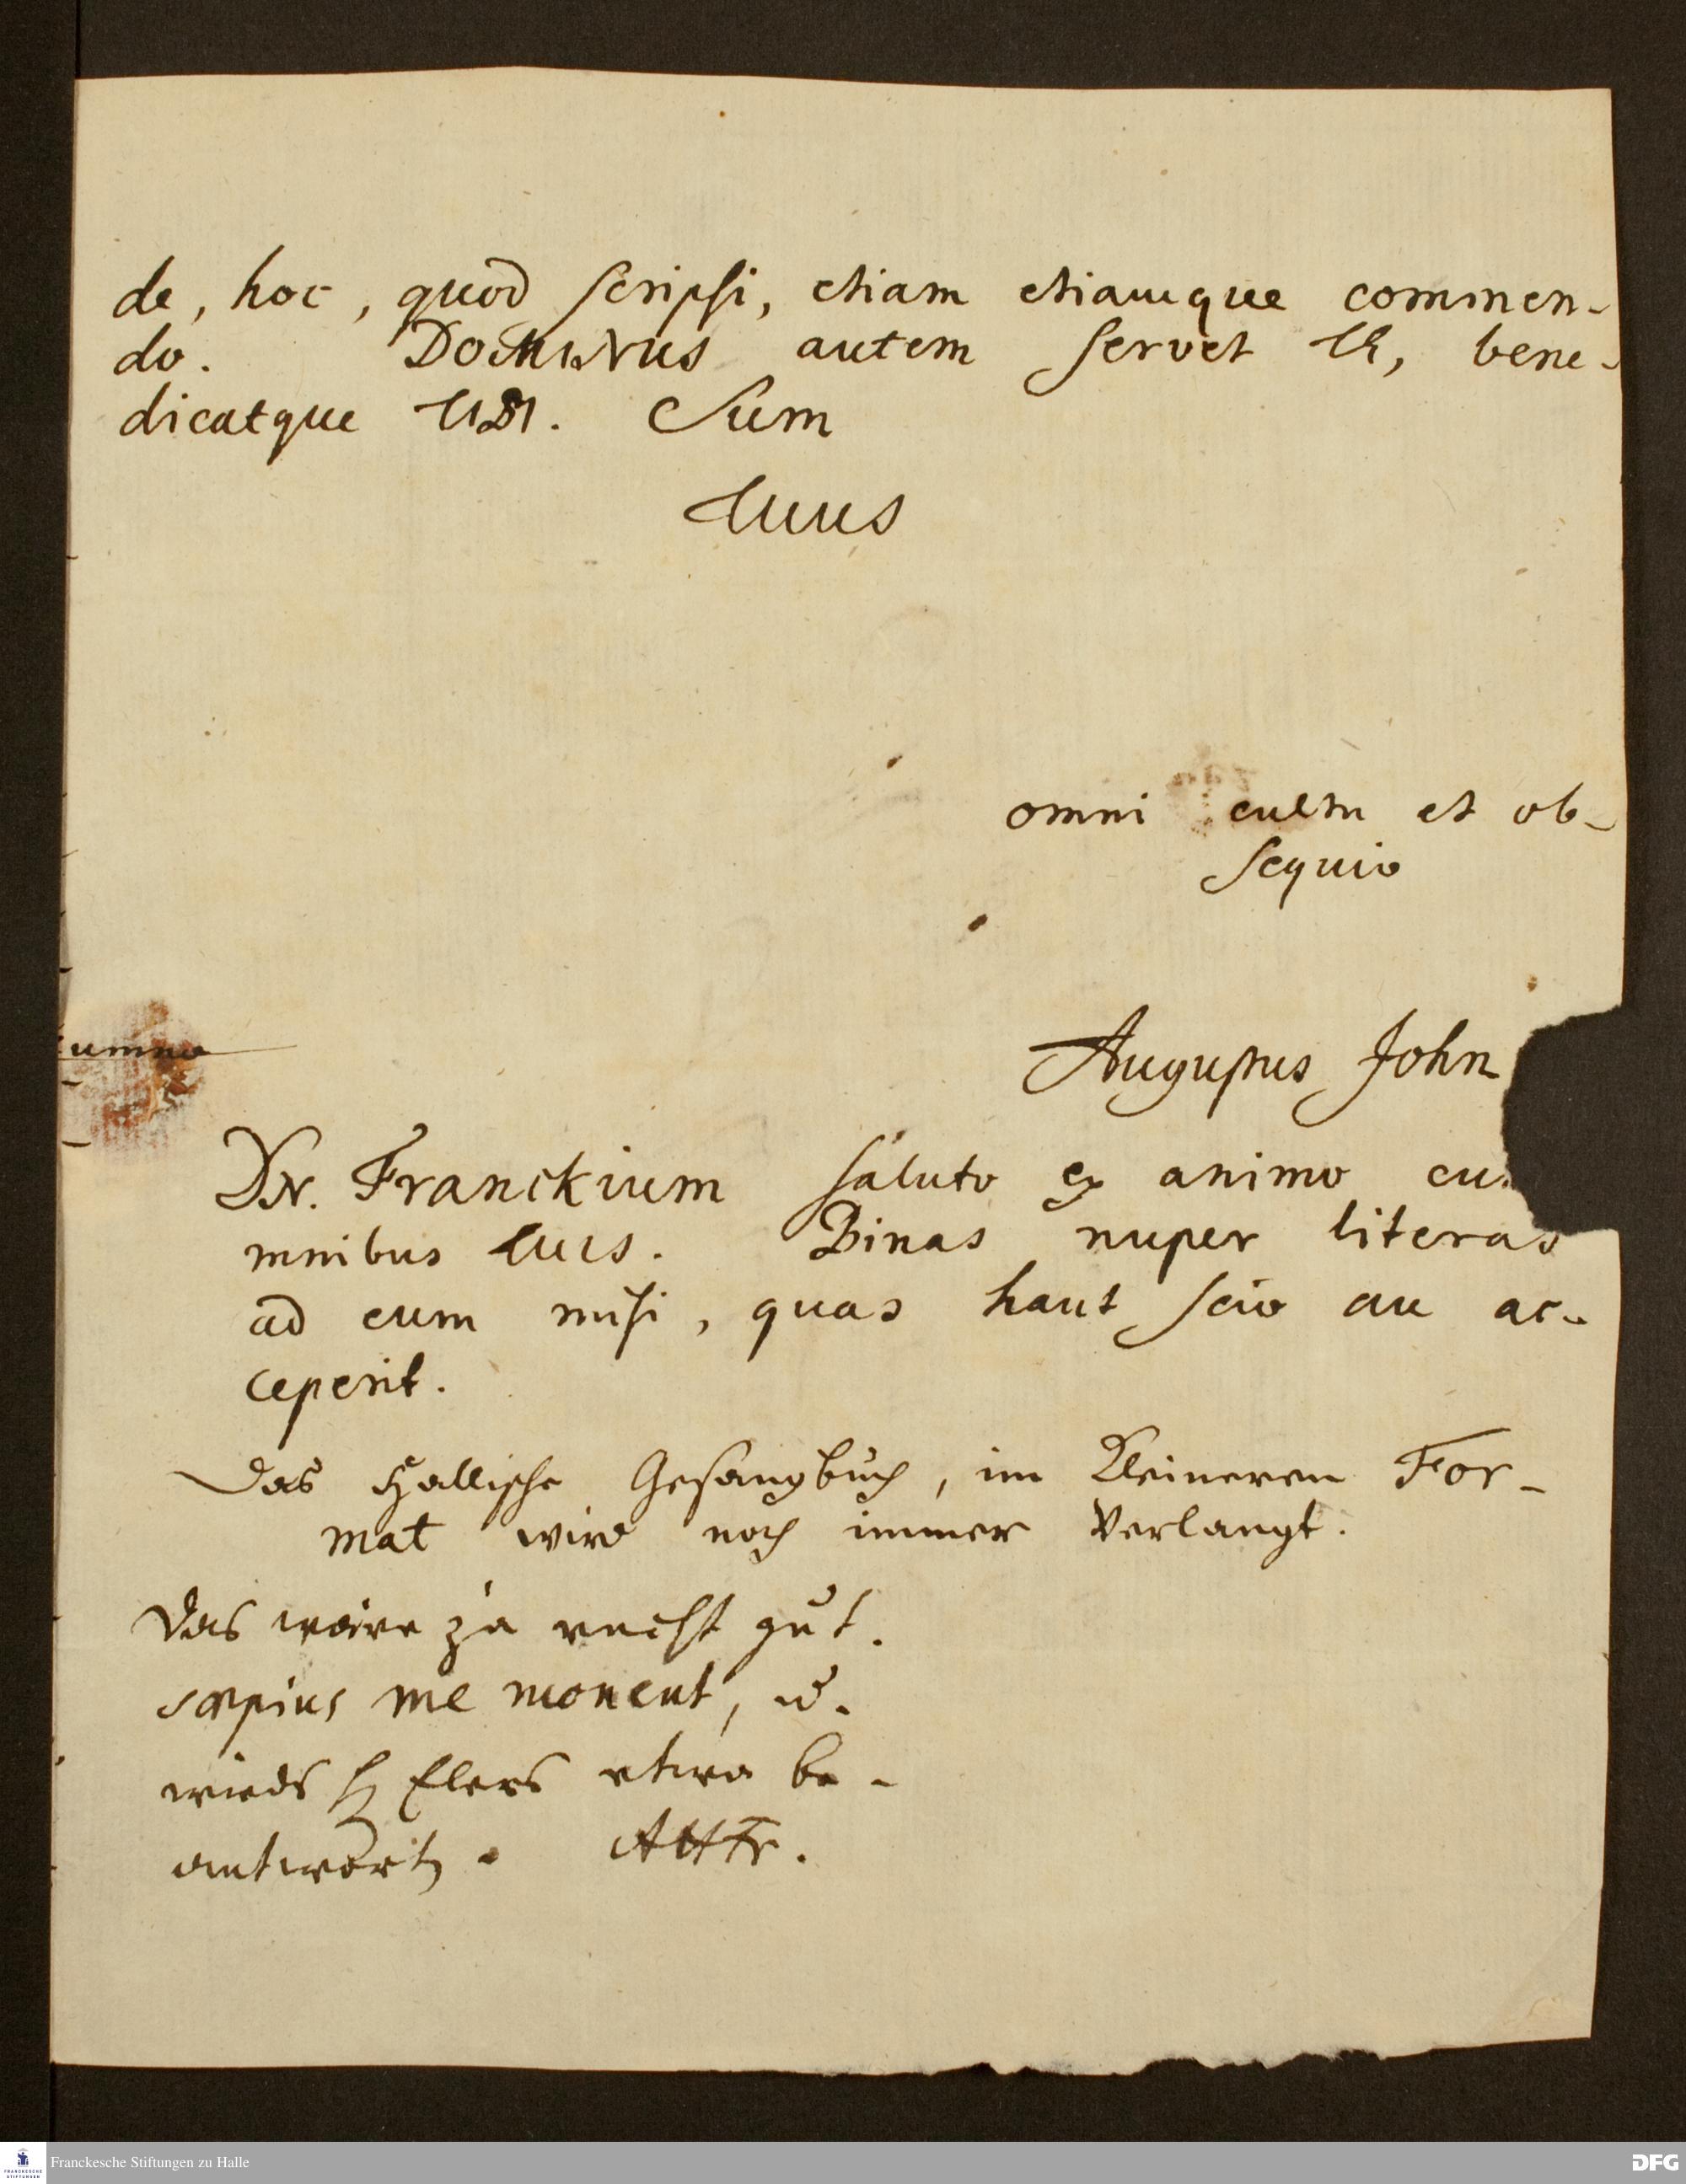 de, hoc, quod scripsi, etiam etiamque commen-
do. DomiNus autem servet TE, bene-
dicatque TIBI. Sum
Tuus
omni cultu et ob-
sequio
Augustus Joh
umno
DN. Franckium saluto ex animo cu
mnibus Tuis. Binas nuper literas
ad eum misi, quas haut scio an ac-
ceperit.
Das Hallische Gesangbuch, im kleineren For-
mat wird noch immer verlangt.
Das wäre ja recht gut.
sæpius me monent, u.
H Elers etwa be-
antwort. AHFr.
Franckesche Stiftungen zu Halle
FRANCKESCHE STIFTUNGEN
DFG